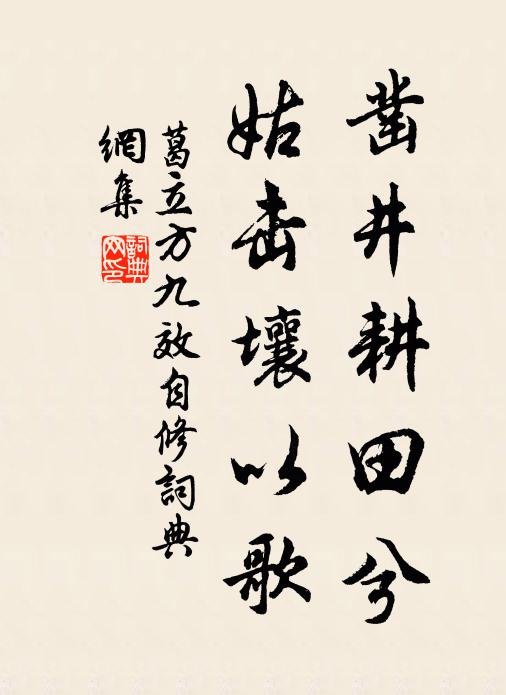 凿井耕田兮
姑击壤以歌
葛立方九效自修詞典
網集
詞典
网印